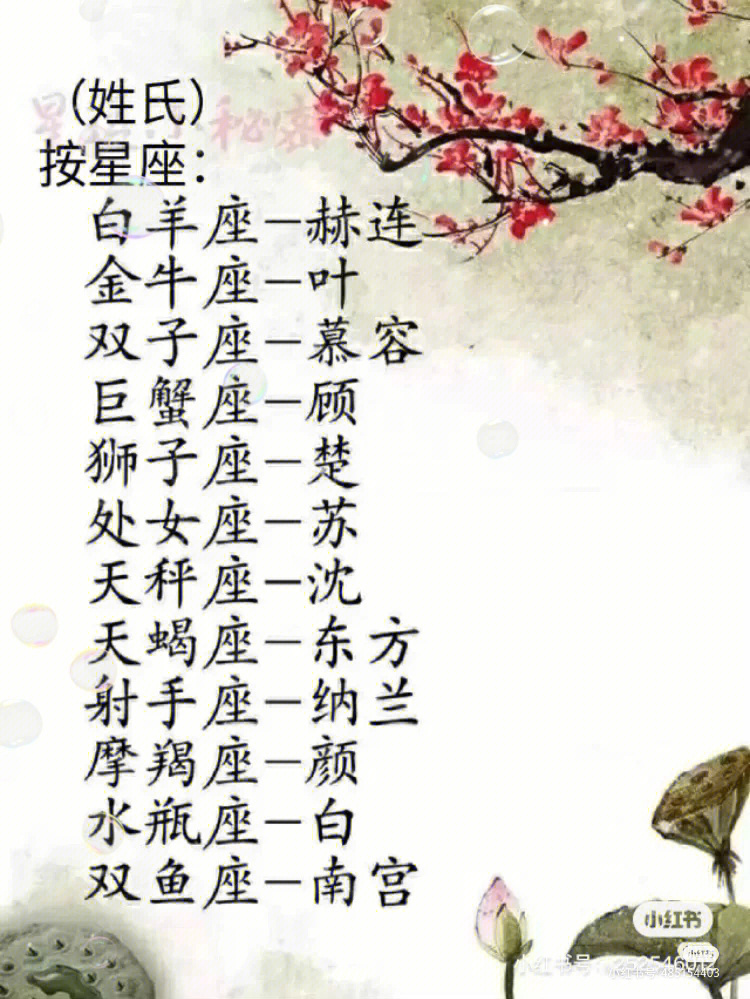 （姓氏）
按星座：
白羊座—赫连
金牛座—叶
双子座—慕容
巨蟹座—顾
狮子座—楚
处女座—苏
天秤座—沈
天蝎座—东方
射手座—纳兰
摩羯座—颜
水瓶座—白
双鱼座—南宫
小红书